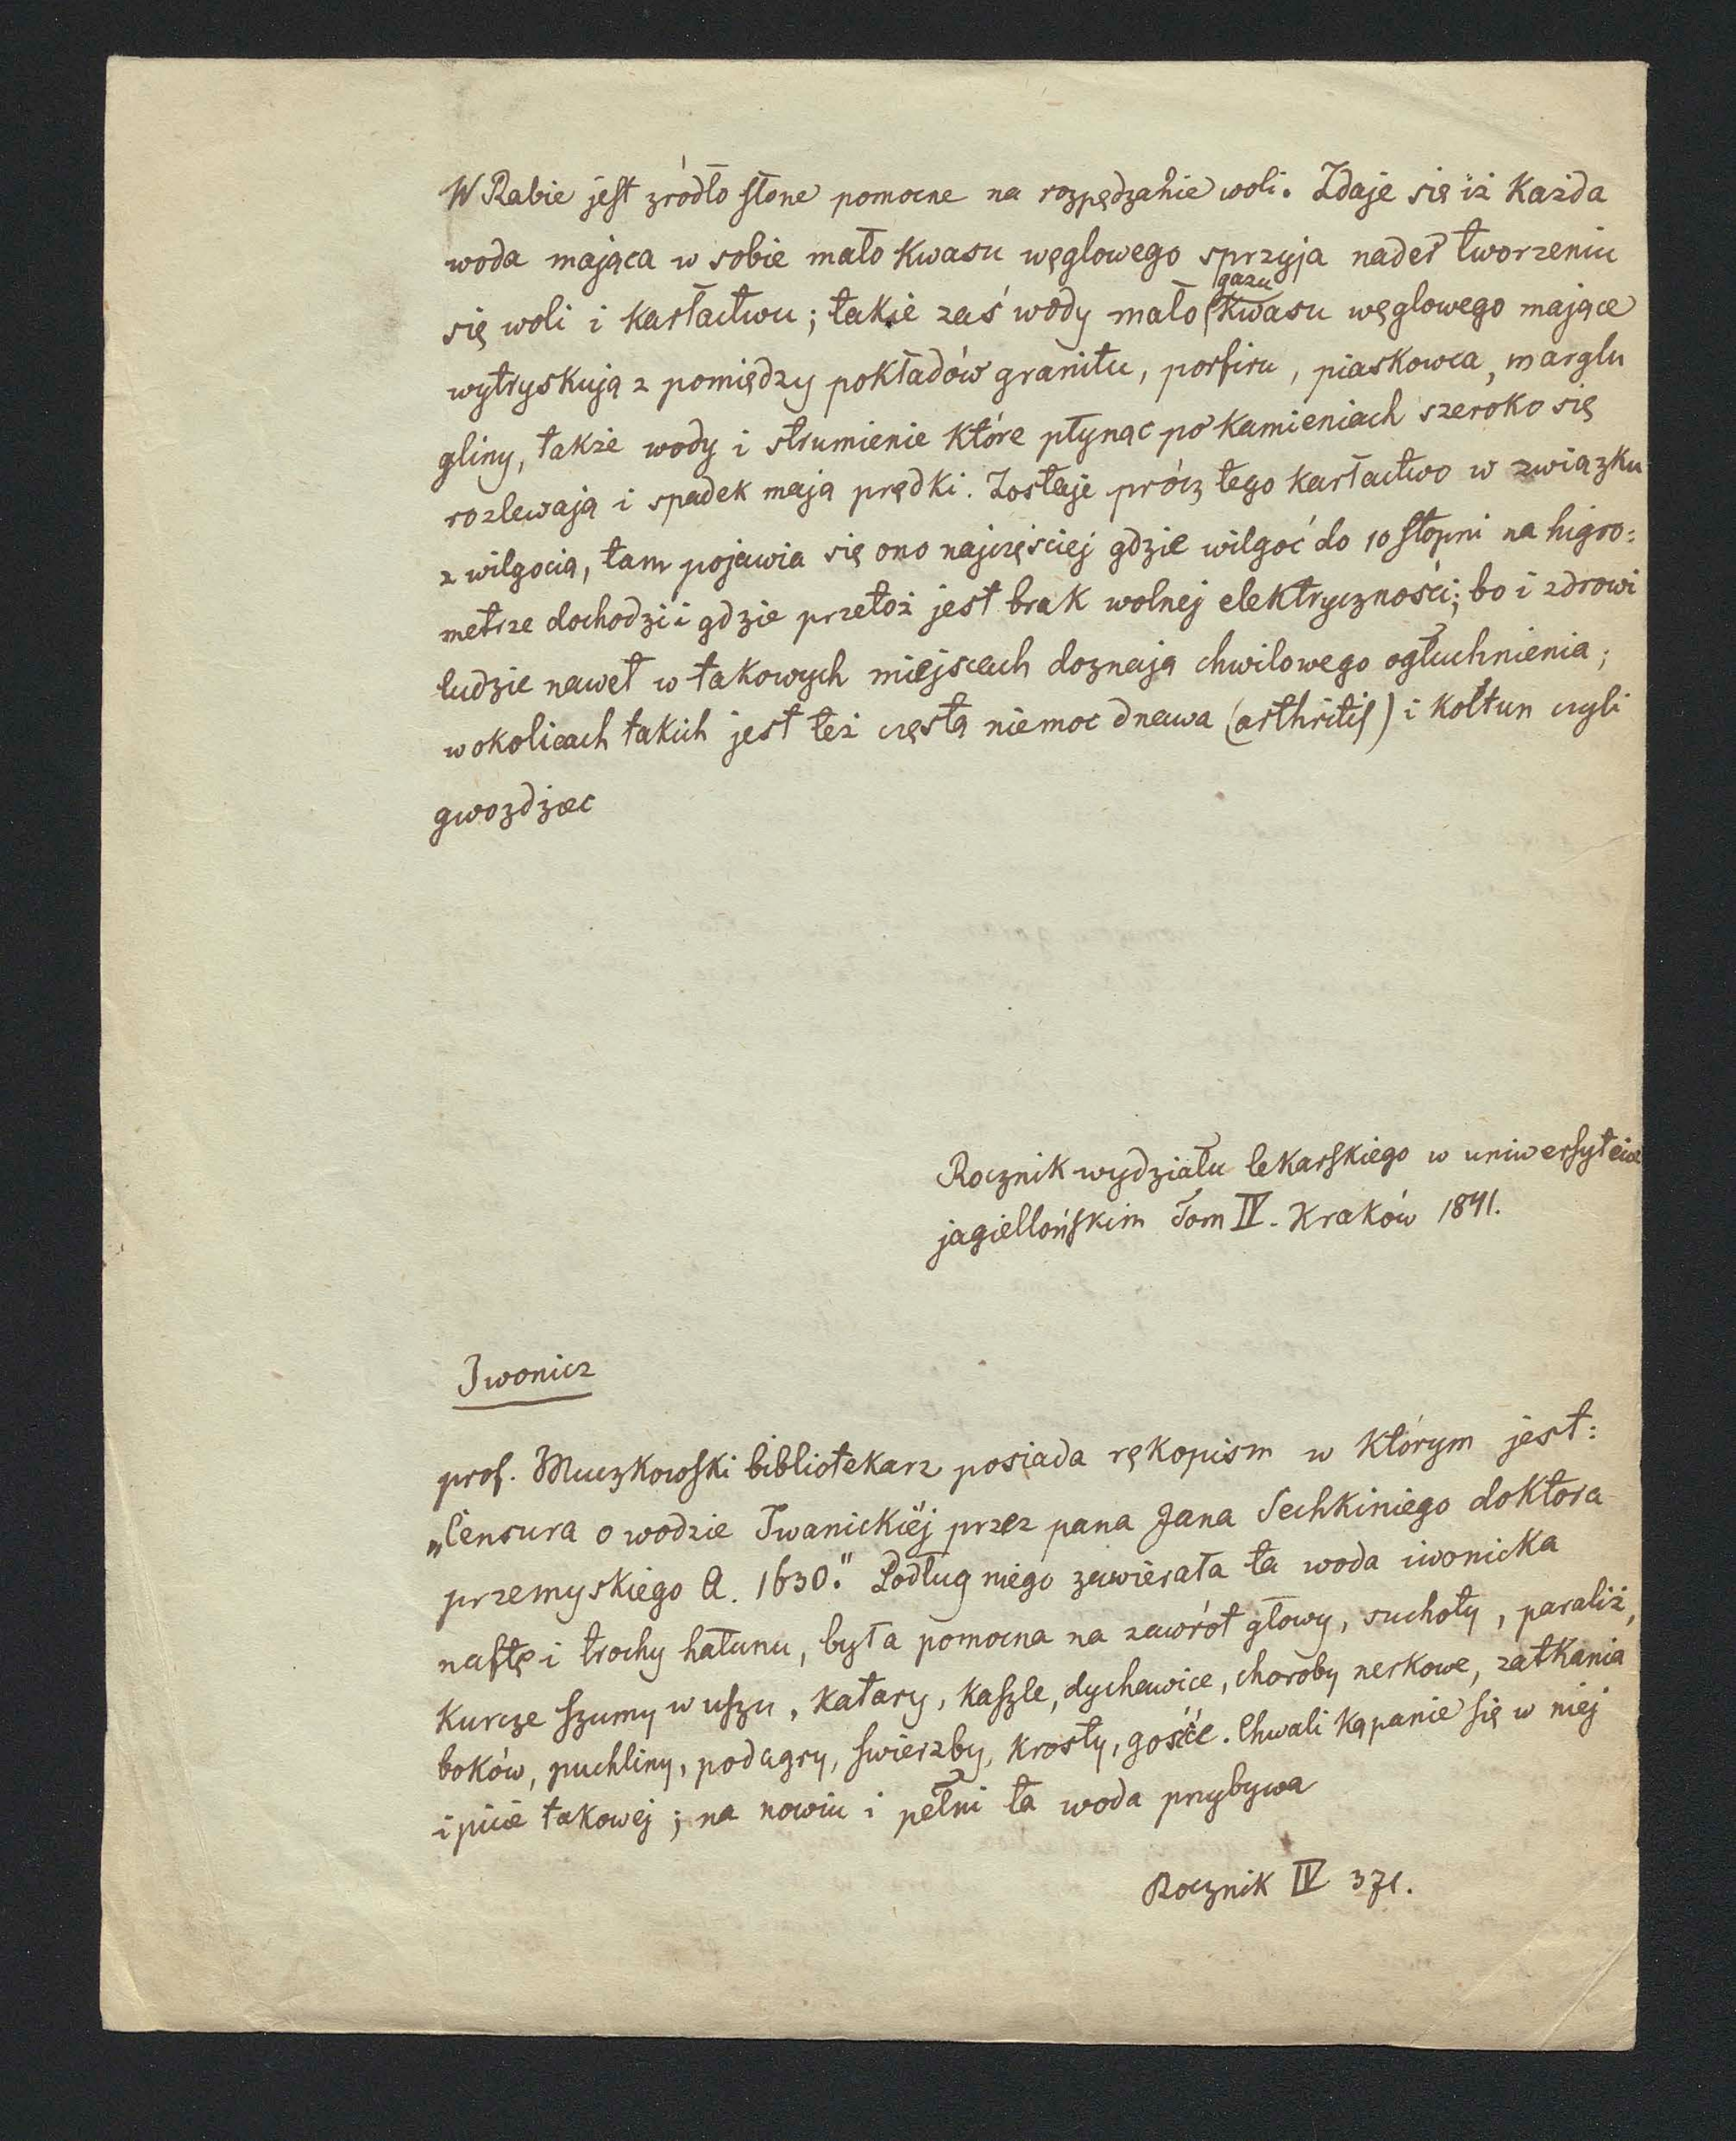 W Rabie jest zródło słone pomocne na rozpędzanie woli. Zdaje się iż każda
woda mająca w sobie mało kwasu węglowego sprzyja nader tworzeniu
się woli i karłactwu; takie zaś wody mało gazu kwasu węglowego mające
wytryskują z pomiędzy pokładów granitu, porfiru, piaskowca, marglu
gliny, także wody i strumienie które płynąc po kamieniach szeroko się
rozlewają i spadek mają prędki. Zostaje prócz tego karłactwo w związku
z wilgocią, tam pojawia się ono najczęściej gdzie wilgoć do 10 stopni na higro=
metrze dochodzi i gdzie przetoż jest brak wolnej elektryczności; bo i zdrowi
ludzie nawet w takowych miejscach doznają chwilowego ogłuchnienia;
w okolicach takich jest też częstą niemoc dnawa (arthritis) i kołtun czyli
gwozdziec
Rocznik wydziału lekarskiego w uniwersytecie
jagiellońskim Tom IV. Kraków 1841.
Iwonicz
prof. Muczkowski bibliotekarz posiada rękopism w którym jest:
„Censura o wodzie Iwanickiéj przez pana Jana Sechkiniego doktora
przemyskiego A. 1630." Podług niego zawierała ta woda iwonicka
naftę i trochy hałunu, była pomocna na zawrót głowy, suchoty, paraliż,
kurcze szumy w uszu, katary, kaszle, dychawice, choroby nerkowe, zatkania
boków, puchliny, podagry, swierzby, krosty, gośće. Chwali kąpanie się w niej
i picie takowej; na nowiu i pełni ta woda przybywa
Rocznik IV 371.